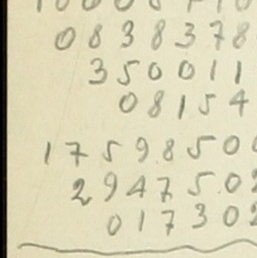 0838378
350011
08154
17598500
2947502
017302